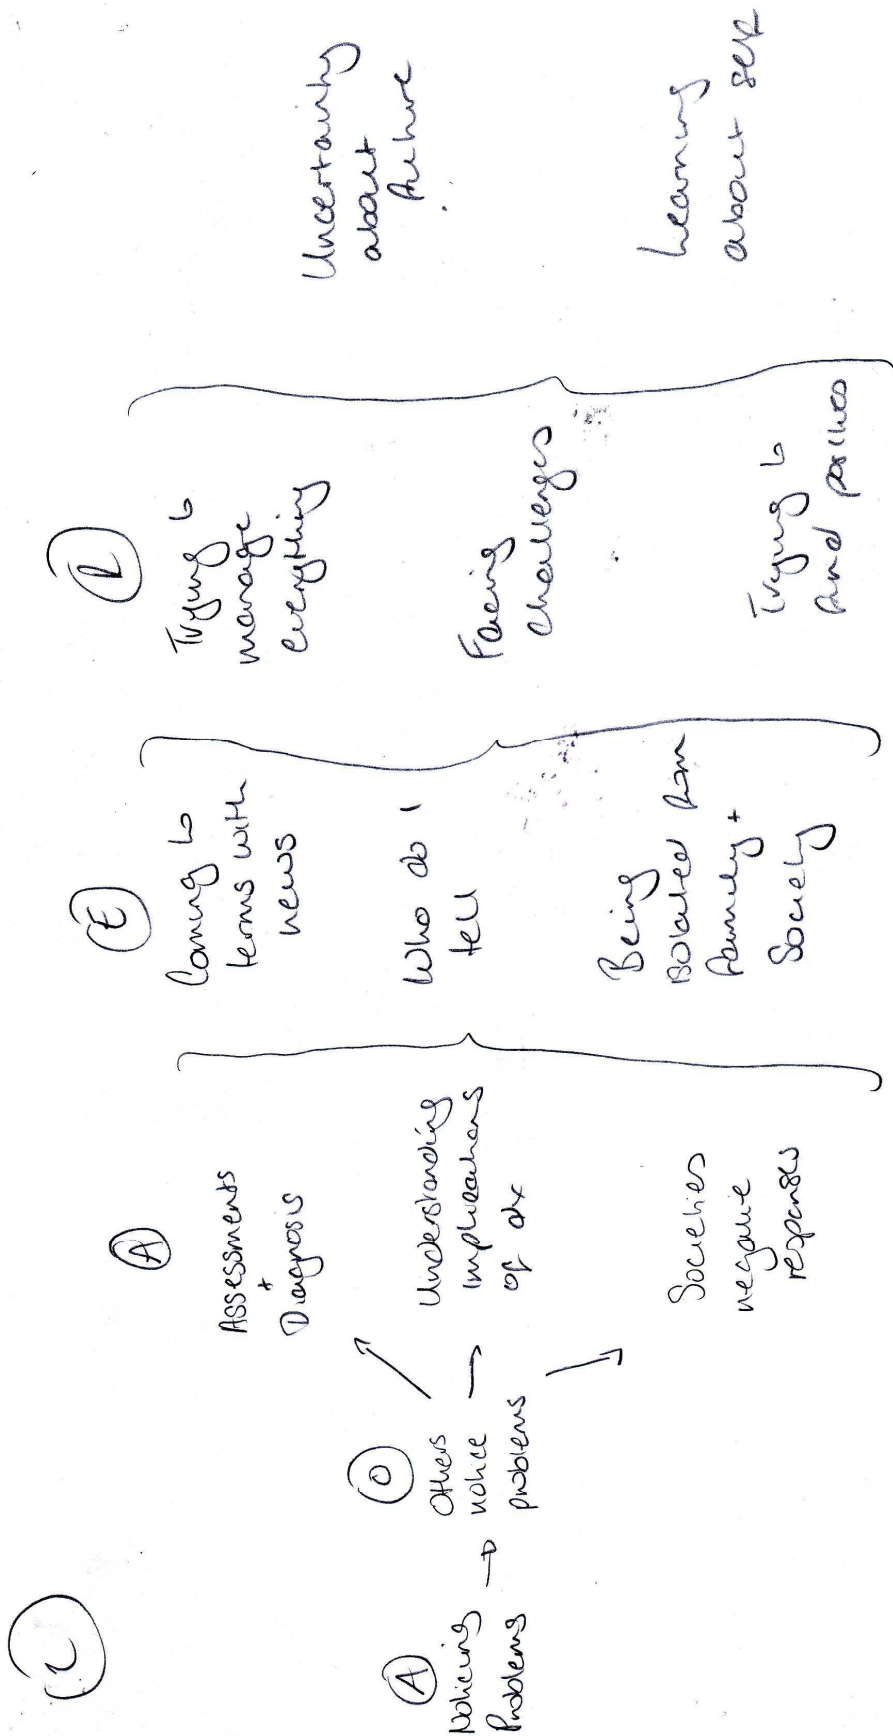 A
Noticing
Problems
O
Others
notice
problems
A
Assessments
+
Diagnosis
Understanding
implications
of dx
Societies
negative
responses
E
Coming to
terms with
news
Who do I
tell
Being
isolated from
family +
Society
Trying to
manage
everything
Facing
challenges
Trying to
find positives
Uncertainty
about
future
Learning
about self